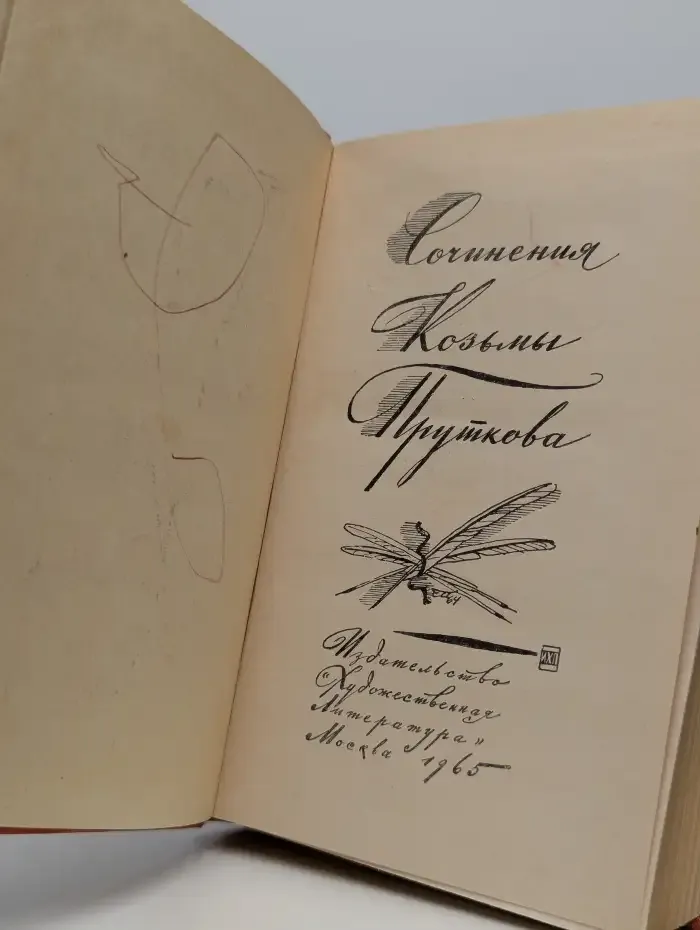 Сочинения
Козьмы
Пруткова
Издательство
"Художественная
Литература"
Москва 1965